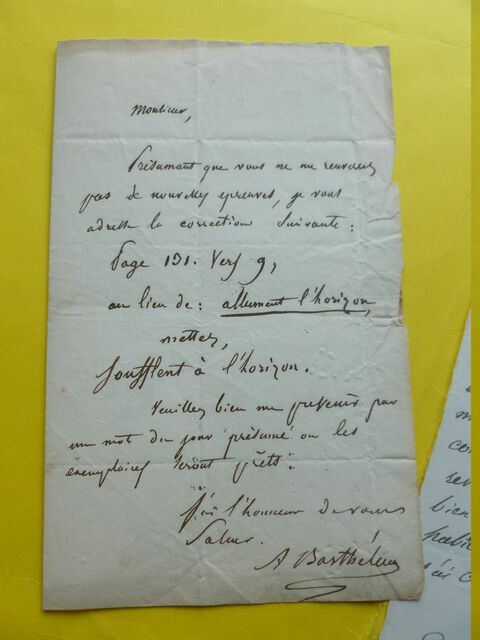 Monsieur,
Présumant que vous ne me renverrez
pas de nouvelles épreuves, je vous
adresse la correction suivante :
Page 131. Vers 9,
au lieu de : allument l'horizon,
mettez,
Soufflent à l'horizon.
Veuillez bien me prévenir par
un mot du jour présumé où les
exemplaires seront prêts.
J'ai l'honneur de vous
Saluer.
A Barthélemy
m
ser
bien